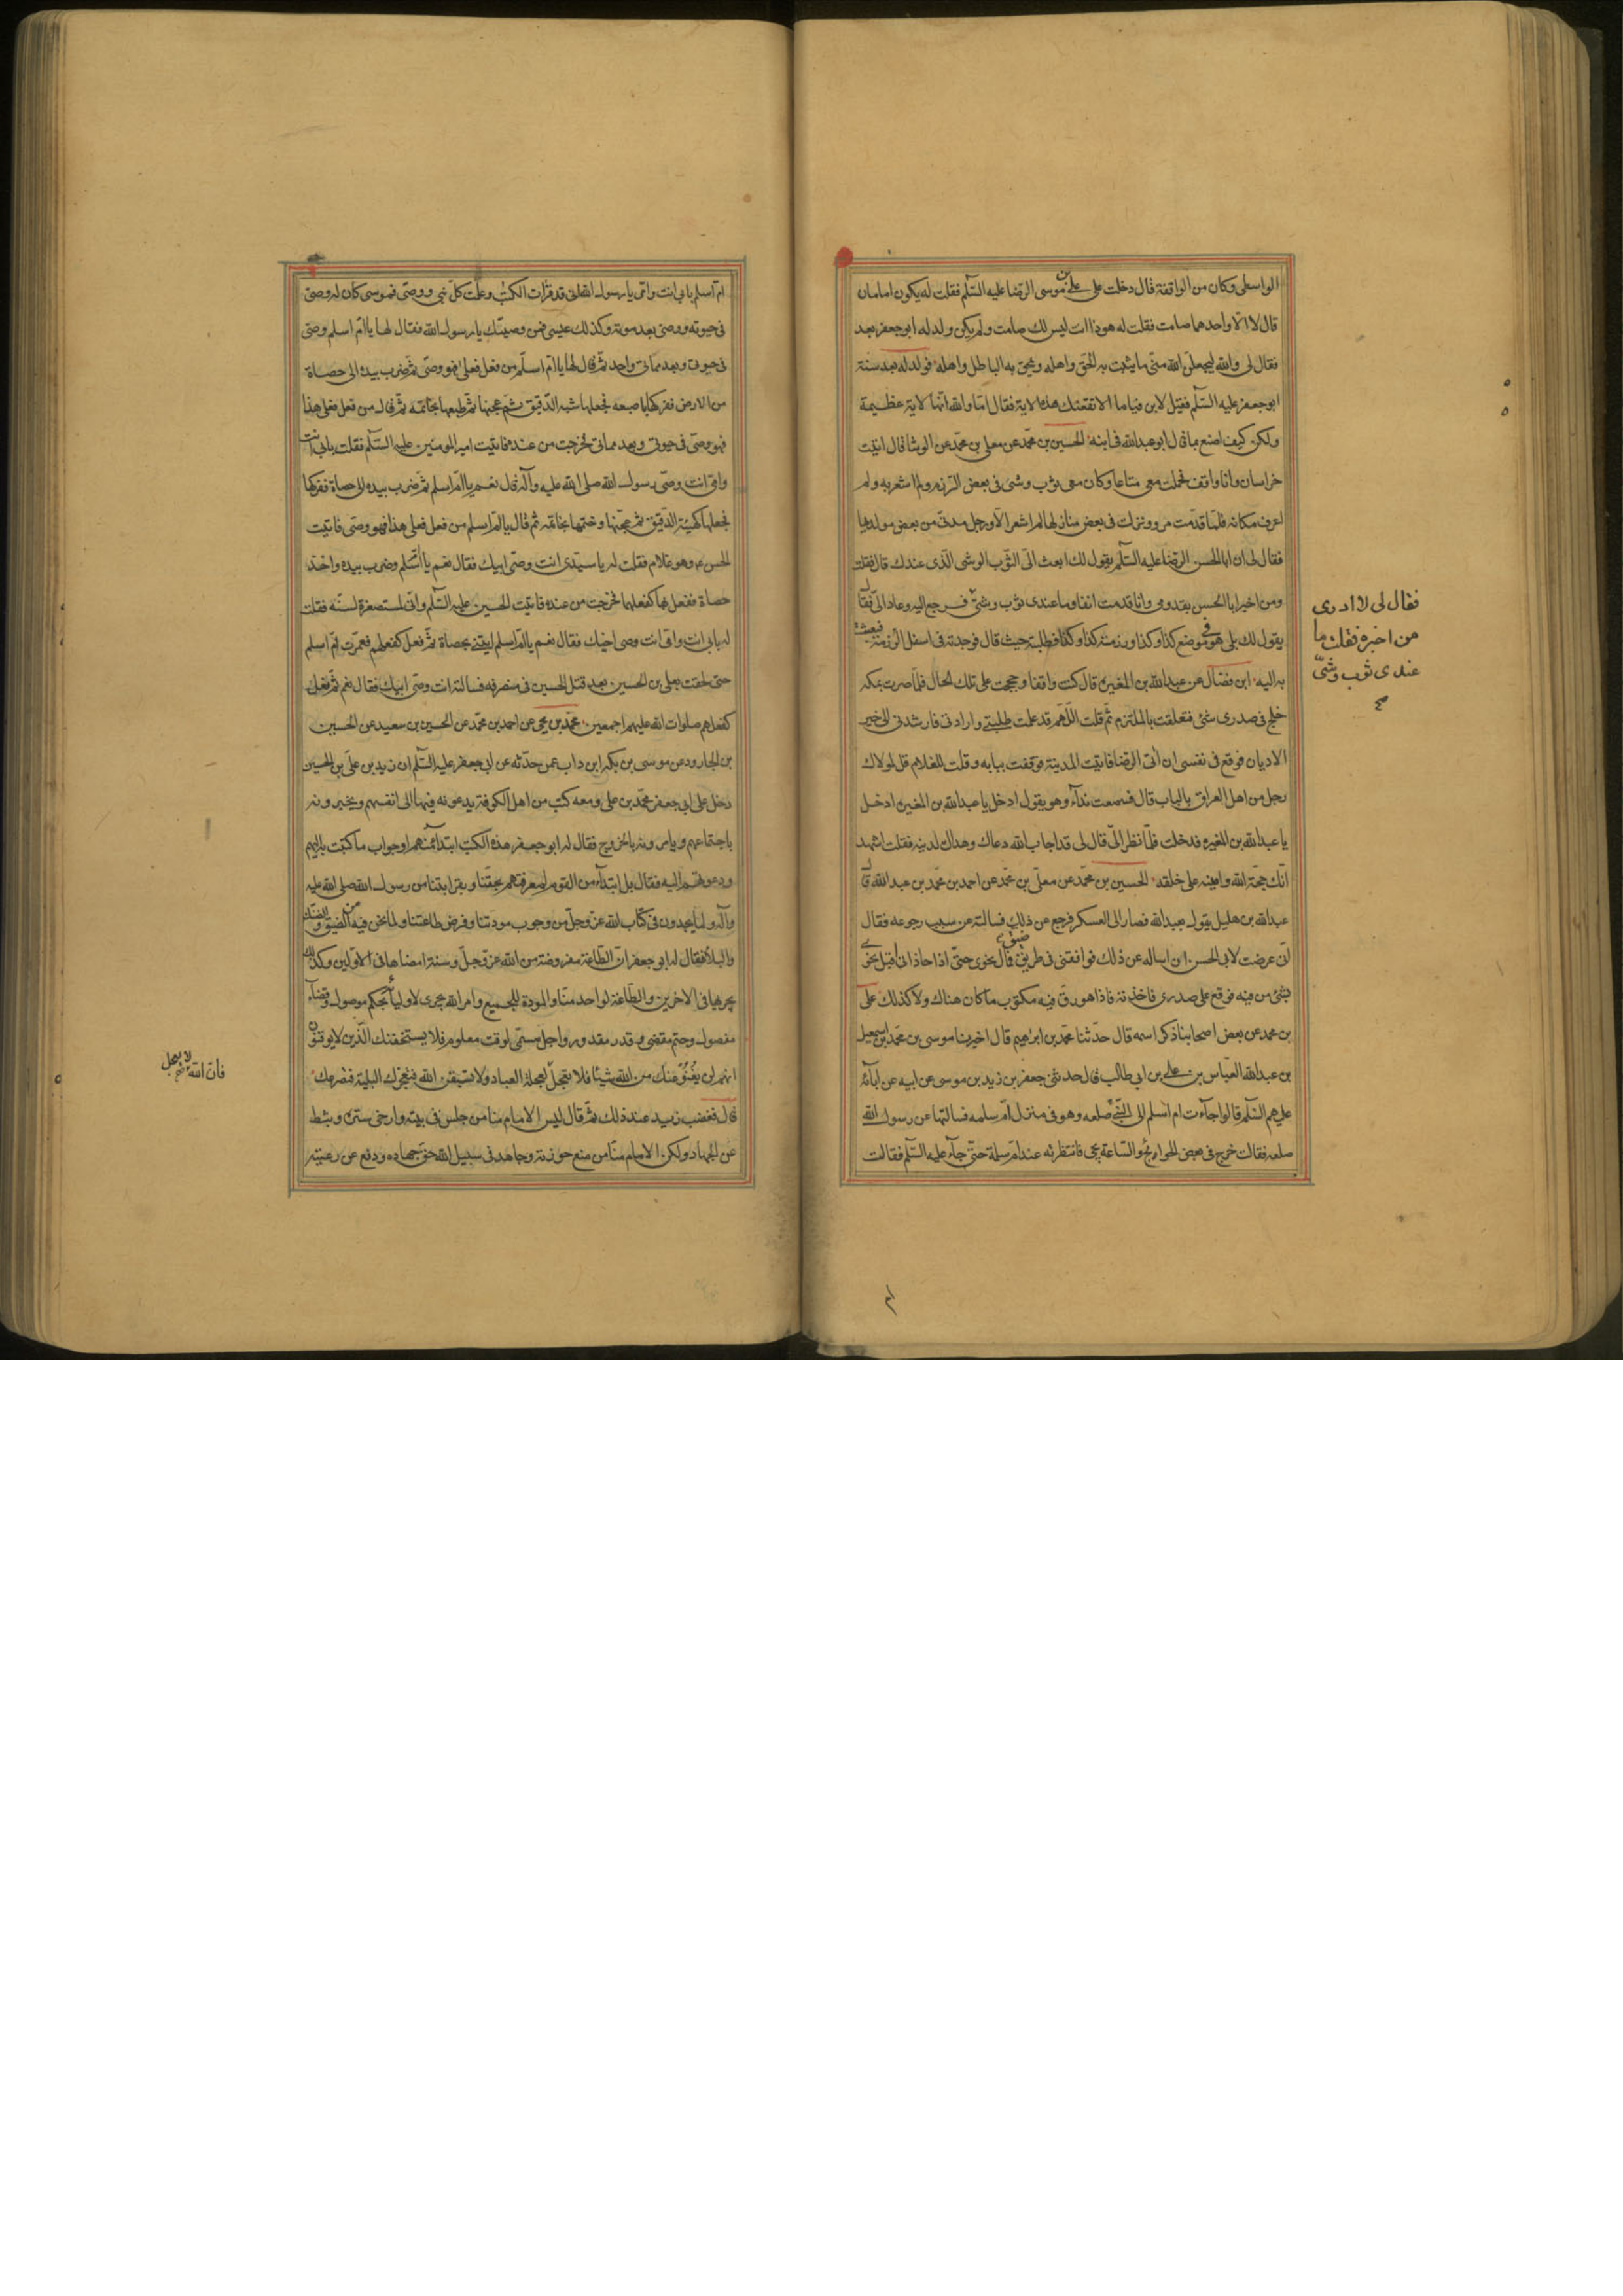 الواسطى وكان من الواقفة قال دخلت على على بن موسى الرضا عليه السلم فقلت له يكون امامان
قال لا الا واحدهما صامت فقلت له هوذا انت ليس لك صامت ولم يكن ولد له ابو جعفر بعد
فقال لى والله ليجعلن الله منى ما يثبت به الحق واهله ويمحق به الباطل واهله فولد له بعد سنة
ابو جعفر عليه السلم فقيل لابن قياما الا تقنعك هذه الاية فقال اما والله انها لاية عظيمة
ولكن كيف اصنع بما قال ابو عبدالله فى ابنه الحسين بن محمد عن معلى بن محمد عن الوشا قال اتيت
خراسان وانا واقف فحملت معى متاعا وكان معى ثوب وشى فى بعض الرزم ولم اشعر به ولم
اعرف مكانه فلما قدمت مرو ونزلت فى بعض منازلها لم اشعر الا ورجل مدنى من بعض مولديها
فقال لى ان ابا الحسن الرضا عليه السلم يقول لك ابعث الى الثوب الوشى الذى عندك قال فقلت
ومن اخبر ابا الحسن بقدومى وانا قدمت انفا وما عندى ثوب وشى فرجع اليه وعاد الى فقال
يقول لك بلى هو فى موضع كذا وكذا ورزمته كذا وكذا فطلبته حيث قال فوجدته فى اسفل الرزمة فبعثت
به اليه ابن فضال عن عبدالله بن المغيرة قال كنت واقفا وحججت على تلك الحال فلما صرت بمكه
خلج فى صدرى شئ فتعلقت بالملتزم ثم قلت اللهم قد علمت طلبتى وارادتى فارشدنى الى خير
الاديان فوقع فى نفسى ان اتى الرضا فاتيت المدينة فوقفت ببابه وقلت للغلام قل لمولاك
رجل من اهل العراق بالباب قال فسمعت نداءه وهو يقول ادخل يا عبدالله بن المغيره ادخل
يا عبدالله بن المغيره فدخلت فلما نظر الى قال لى قد اجاب الله دعاك وهداك لدينه فقلت اشهد
انك حجة الله وامينه على خلقه الحسين بن محمد عن معلى بن محمد عن احمد بن محمد بن عبدالله قال
عبدالله بن هليل يقول بعبدالله فصار الى العسكر فرجع عن ذلك فسالته عن سبب رجوعه فقال
انى عرضت لابى الحسن ان اساله عن ذلك فوافقنى فى طريق ضيق فمال نحوى حتى اذا حاذانى اقبل نحوى
بشئ من فيه فوقع على صدرى فاخذته فاذا هو رق فيه مكتوب ما كان هنالك ولا كذلك على
بن محمد عن بعض اصحابنا ذكر اسمه قال حدثنا محمد بن ابراهيم قال اخبرنا موسى بن محمد بن اسمعيل
بن عبدالله العباس بن على بن ابى طالب قال حدثنى جعفر بن زيد بن موسى عن ابيه عن آبائه
عليهم السلم قالوا جاءت ام اسلم الى النبى صلعم وهو فى منزل ام سلمه فسالتها عن رسول الله
صلعم فقالت خرج فى بعض الحوائج والساعة يجى فانتظرته عند ام سلمة حتى جاء عليه السلم فقالت
فقال لى لا ادرى
من اخبره فقلت ما
عندى ثوب وشى
ام اسلم بابى انت وامى يا رسول الله انى قد قرات الكتب وعلمت كل نبى ووصى فموسى كان له وصى
فى حيوته ووصى بعد موته وكذلك عيسى فمن وصيك يا رسول الله فقال لها يا ام اسلم وصيى
فى حيوتى وبعد مماتى واحد ثم قال لها يا ام اسلم من فعل فعلى فهو وصيى ثم ضرب بيده الى حصاة
من الارض ففركها باصبعه فجعلها شبه الدقيق ثم عجنها ثم طبعها بخاتمه ثم قال من فعل فعلى هذا
فهو وصيى فى حيوتى وبعد مماتى فخرجت من عنده فاتيت امير المومنين عليه السلم فقلت بابى انت
وامى انت وصى رسول الله صلى الله عليه وآله قال نعم يا ام اسلم ثم ضرب بيده الى حصاة ففركها
فجعلها كهيئة الدقيق ثم عجنها وختمها بخاتمه ثم قال يا ام اسلم من فعل فعلى هذا فهو وصيى فاتيت
الحسن ع وهو غلام فقلت له يا سيدى انت وصى ابيك فقال نعم يا ام اسلم وضرب بيده واخذ
حصاة ففعل بها كفعلهما فخرجت من عنده فاتيت الحسين عليه السلم وانى لمستصغرة لسنه فقلت
له بابى انت وامى انت وصى اخيك فقال نعم يا ام اسلم ايتنى بحصاة ثم فعل كفعلهم فعمرت ام اسلم
حتى لحقت بعلى بن الحسين بعد قتل الحسين فى منصرفه فسالته انت وصى ابيك فقال نعم ثم فعل
كفعلهم صلوات الله عليهم اجمعين محمد بن يحيى عن احمد بن محمد عن الحسين بن سعيد عن الحسين
بن الجارود عن موسى بن بكر ابن داب عمن حدثه عن ابى جعفر عليه السلم ان زيد بن على بن الحسين
دخل على ابى جعفر محمد بن على ومعه كتب من اهل الكوفة يدعونه فيها الى انفسهم ويخبرونه
باجتماعهم ويامرونه بالخروج فقال له ابو جعفر هذه الكتب ابتداء منهم او جواب ما كتبت به اليهم
ودعوتهم اليه فقال بل ابتداء من القوم لمعرفتهم بحقنا وبقرابتنا من رسول الله صلى الله عليه
وآله ولما يجدون فى كتاب الله عز وجل من وجوب مودتنا وفرض طاعتنا ولما نحن فيه من الضيق والضنك
والبلاء فقال له ابو جعفر ان الطاعة مفروضة من الله عز وجل وسنة امضاها فى الاولين وكذلك
يجريها فى الاخرين والطاعة لواحد منا والمودة للجميع وامر الله يجرى لاوليائه بحكم موصول وقضاء
مفصول وحتم مقضى وقدر مقدور واجل مسمى لوقت معلوم فلا يستخفنك الذين لا يوقنون
انهم لن يغنوا عنك من الله شيئا فلا تعجل لعجلة العباد ولا تسبقن الله فتعجزك البلية فتصرعك
قال فغضب زيد عند ذلك ثم قال ليس الامام منا من جلس فى بيته وارخى ستره وثبط
عن الجهاد ولكن الامام منا من منع حوزته وجاهد فى سبيل الله حق جهاده ودفع عن رعيته
فان الله لا يعجل